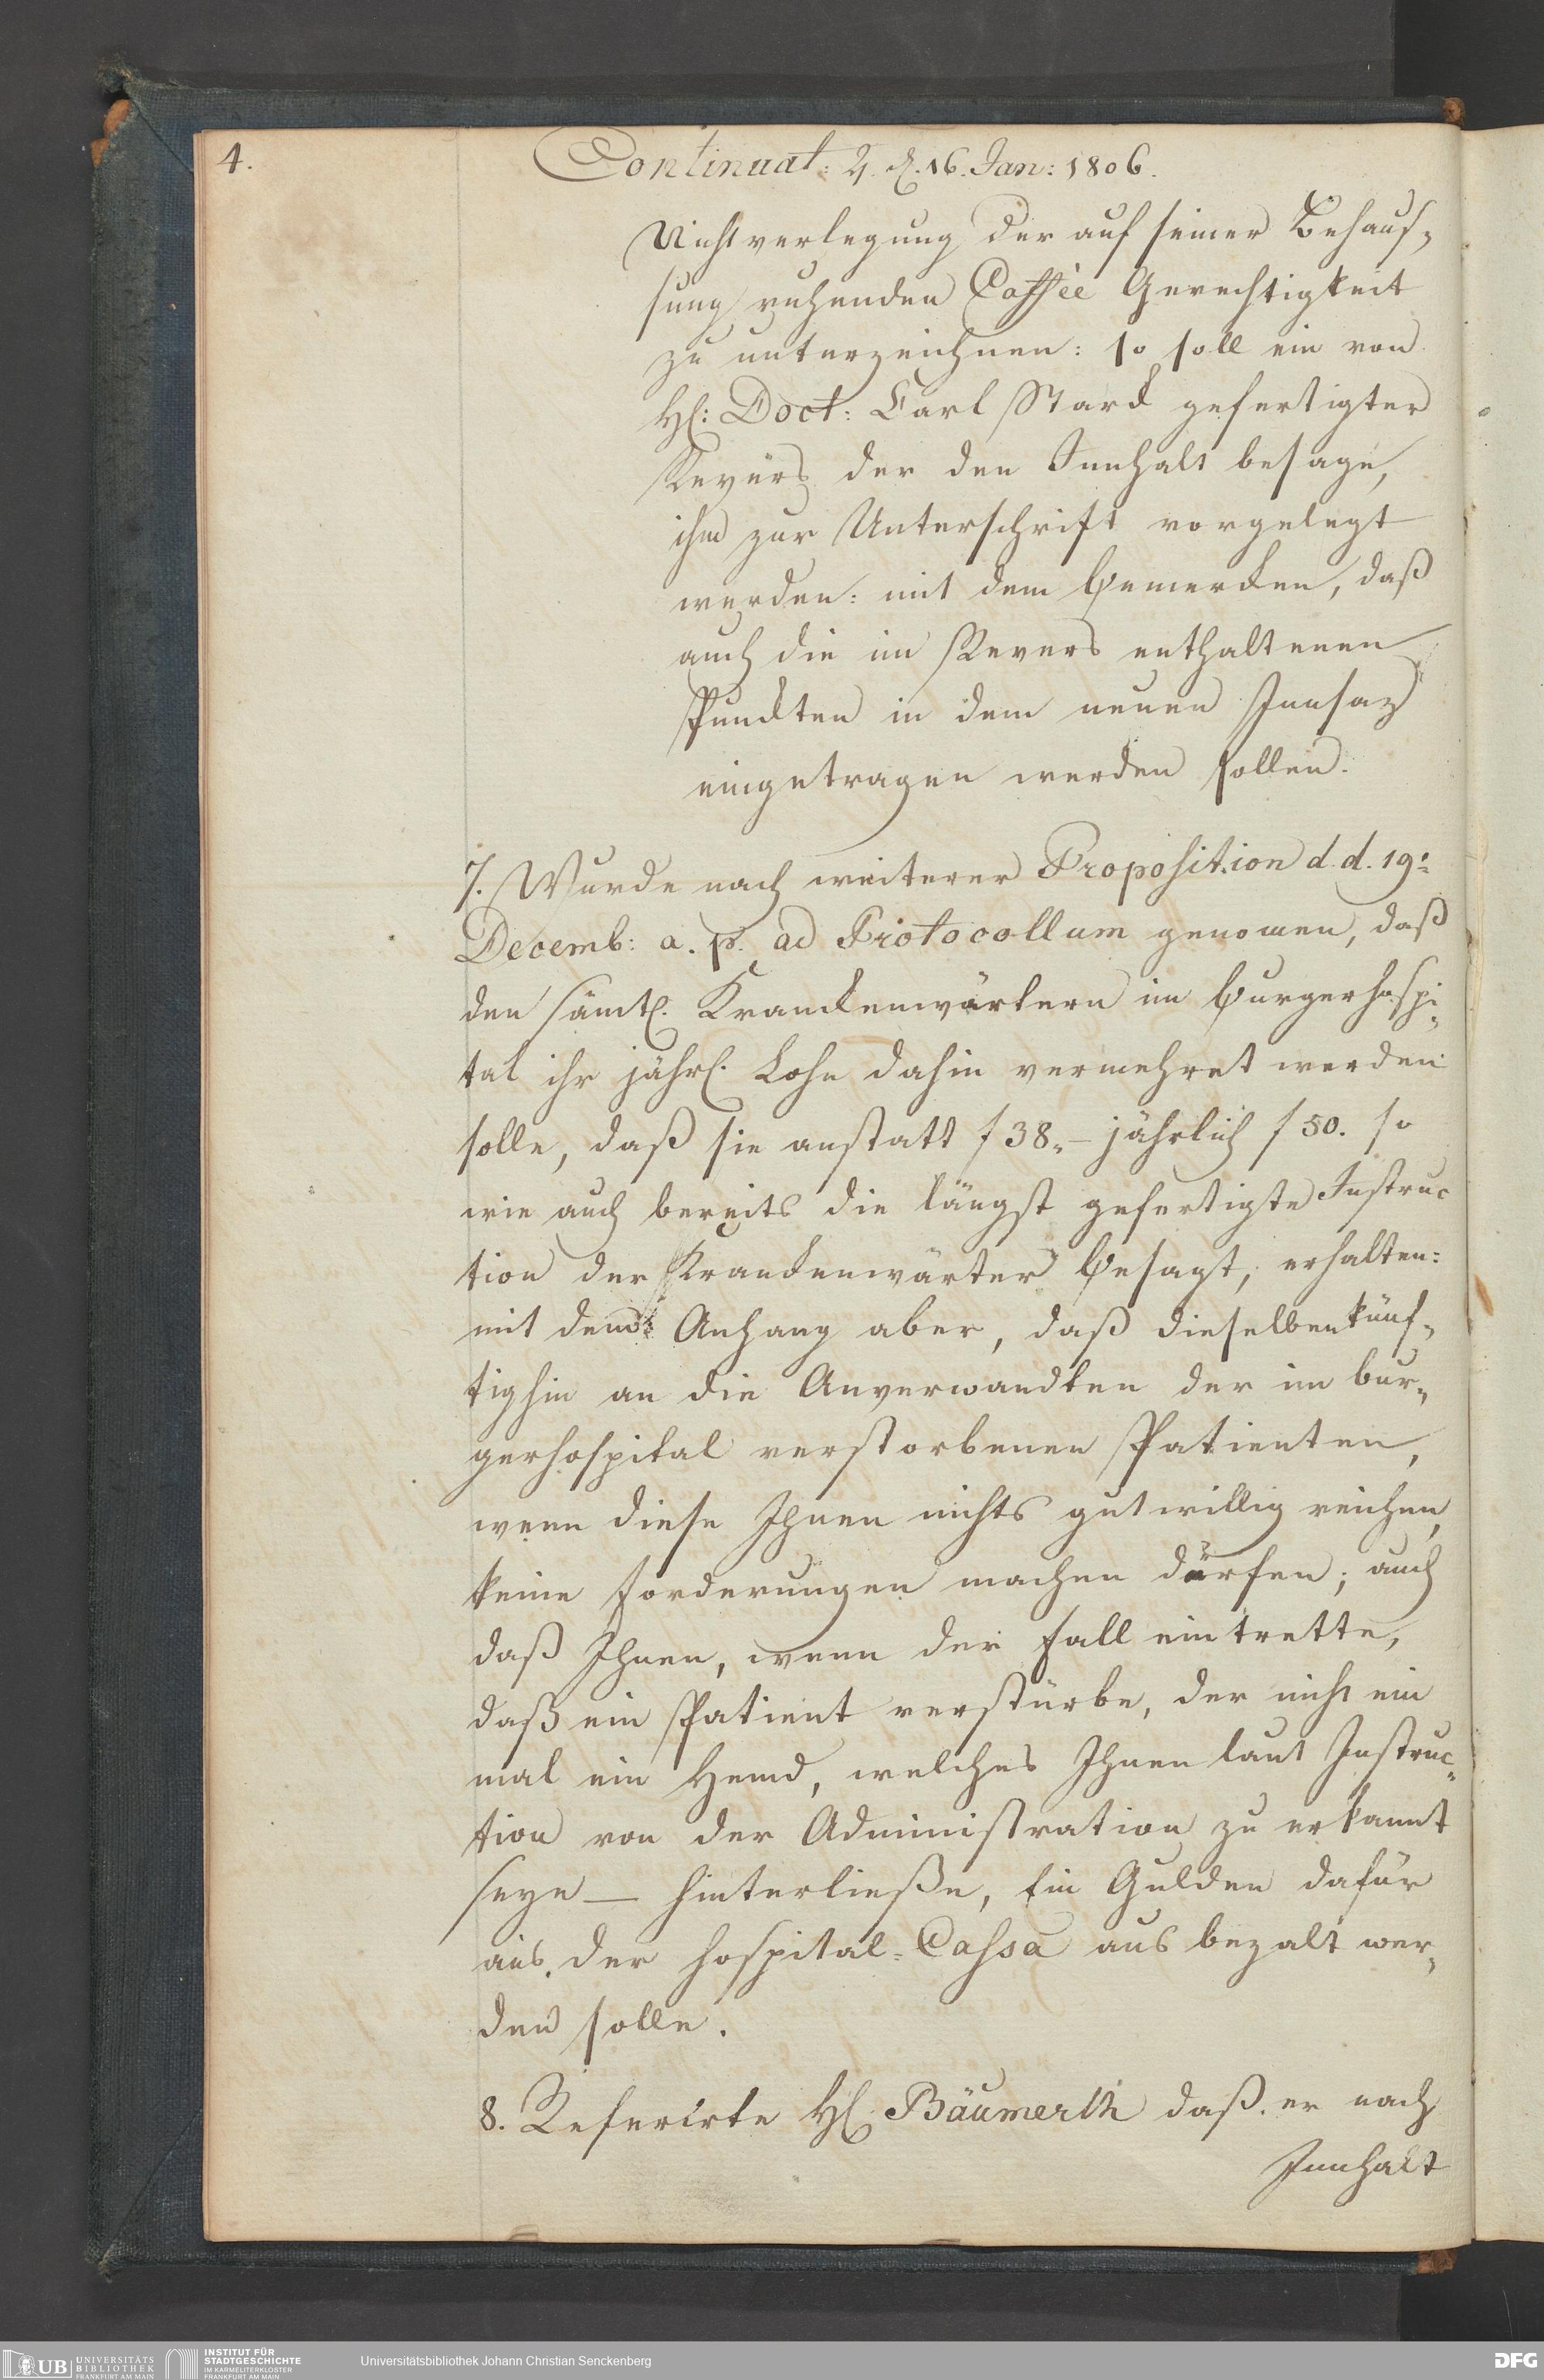 4.
Continuat: ♃. d. 16. Jan: 1806.
Nichtverlegung der auf seiner Behauß¬
sung ruhenden Caffée Gerechtigkeit
zu unterzeichnen: so soll ein von
H: Doct: Carl Starck gefertigter
Revers der den Innhalt besage,
ihm zur Unterschrift vorgelegt
werden: mit dem Bemercken, daß
auch die im Revers enthaltenen
Punckten in dem neuen Innsaz
eingetragen werden sollen.
7. Wurde nach weiterer Proposition d. d. 19:
Decemb: a. p. ad Protocollum genomen, daß
den sämtl. Kranckenwärtern im Burgerhospi¬
tal ihr jährl. Lohn dahin vermehret werden
solle, daß sie anstatt f 38. – jährlich f 50. so
wie auch bereits die längst gefertigte Instruc
tion der Kranckenwärter besagt, erhalten:
mit dem Anhang aber, daß dieselben künf¬
tighin an die Anverwandten der im bur¬
gerhospital verstorbenen Patienten,
wenn diese Ihnen nichts gutwillig reichen,
keine forderungen machen dürfen; auch
daß Ihnen, wenn der Fall eintrette,
daß ein Patient verstürbe, der nicht ein
mal ein Hemd, welches Ihnen laut Instruc¬
tion von der Administration zu erkannt
seye — hinterließe, Ein Gulden dafür
aus der Hospital-Cassa aus bezalt wer¬
den solle.
8. Referirte H: Bäumerth daß er nach
Innhalt
UB UNIVERSITÄTS
BIBLIOTHEK
FRANKFURT AM MAIN
INSTITUT FÜR
STADTGESCHICHTE
IM KARMELITERKLOSTER
FRANKFURT AM MAIN
Universitätsbibliothek Johann Christian Senckenberg
DFG